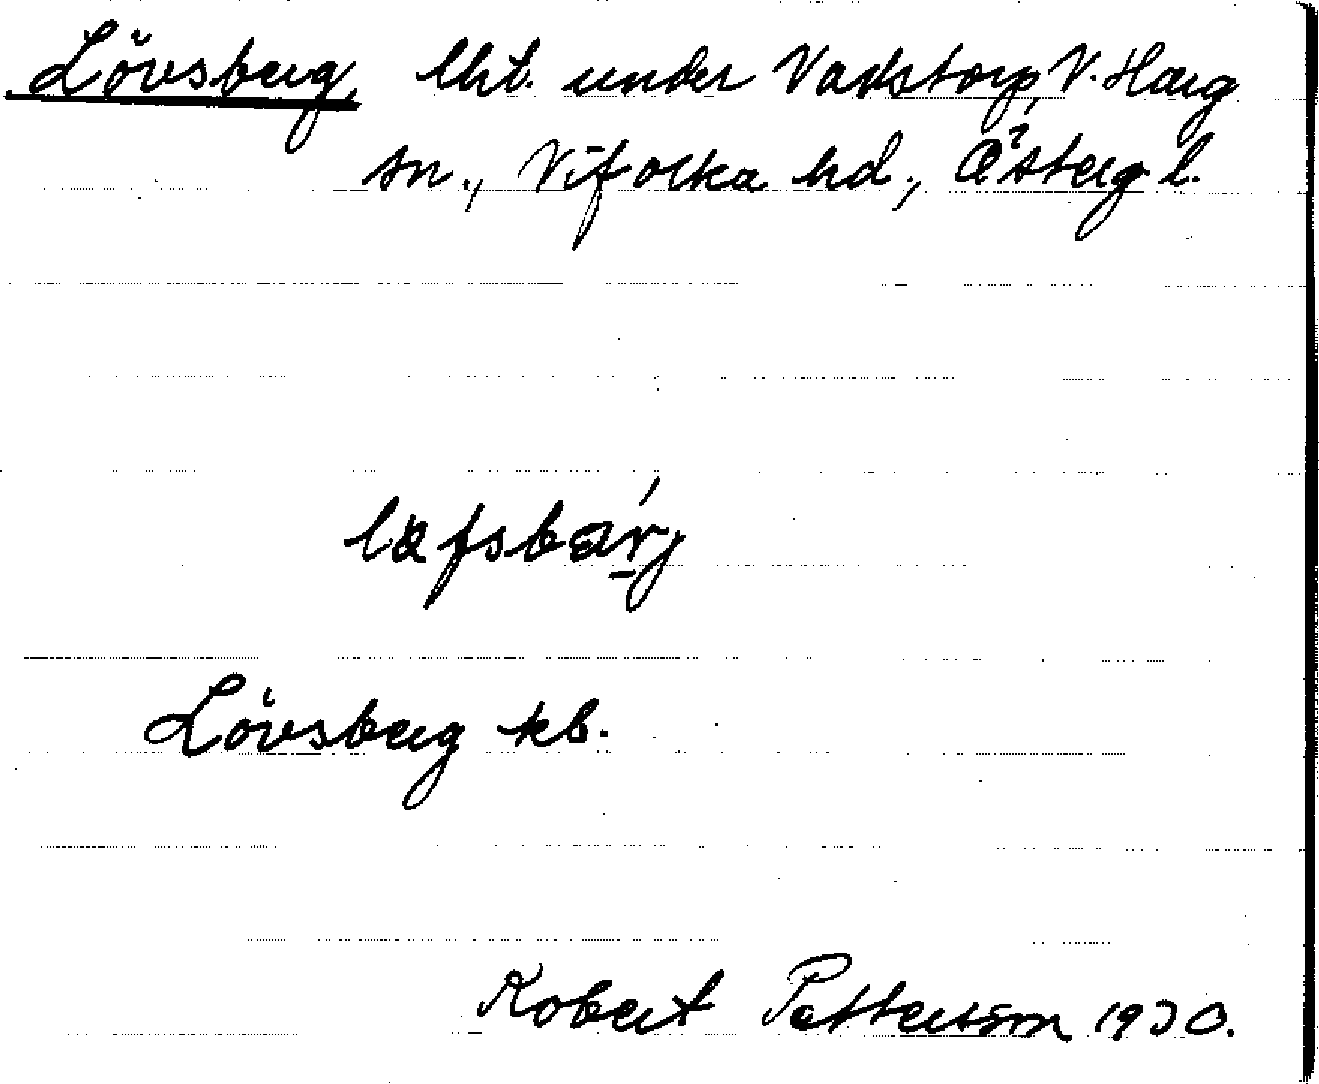 Lövsberg, lht. under Vadstorp, V. Harg
sn., Vifolka hd, Östergl.
lafsbarj
Lövsberg kb.
Robert Pettersson 1930.